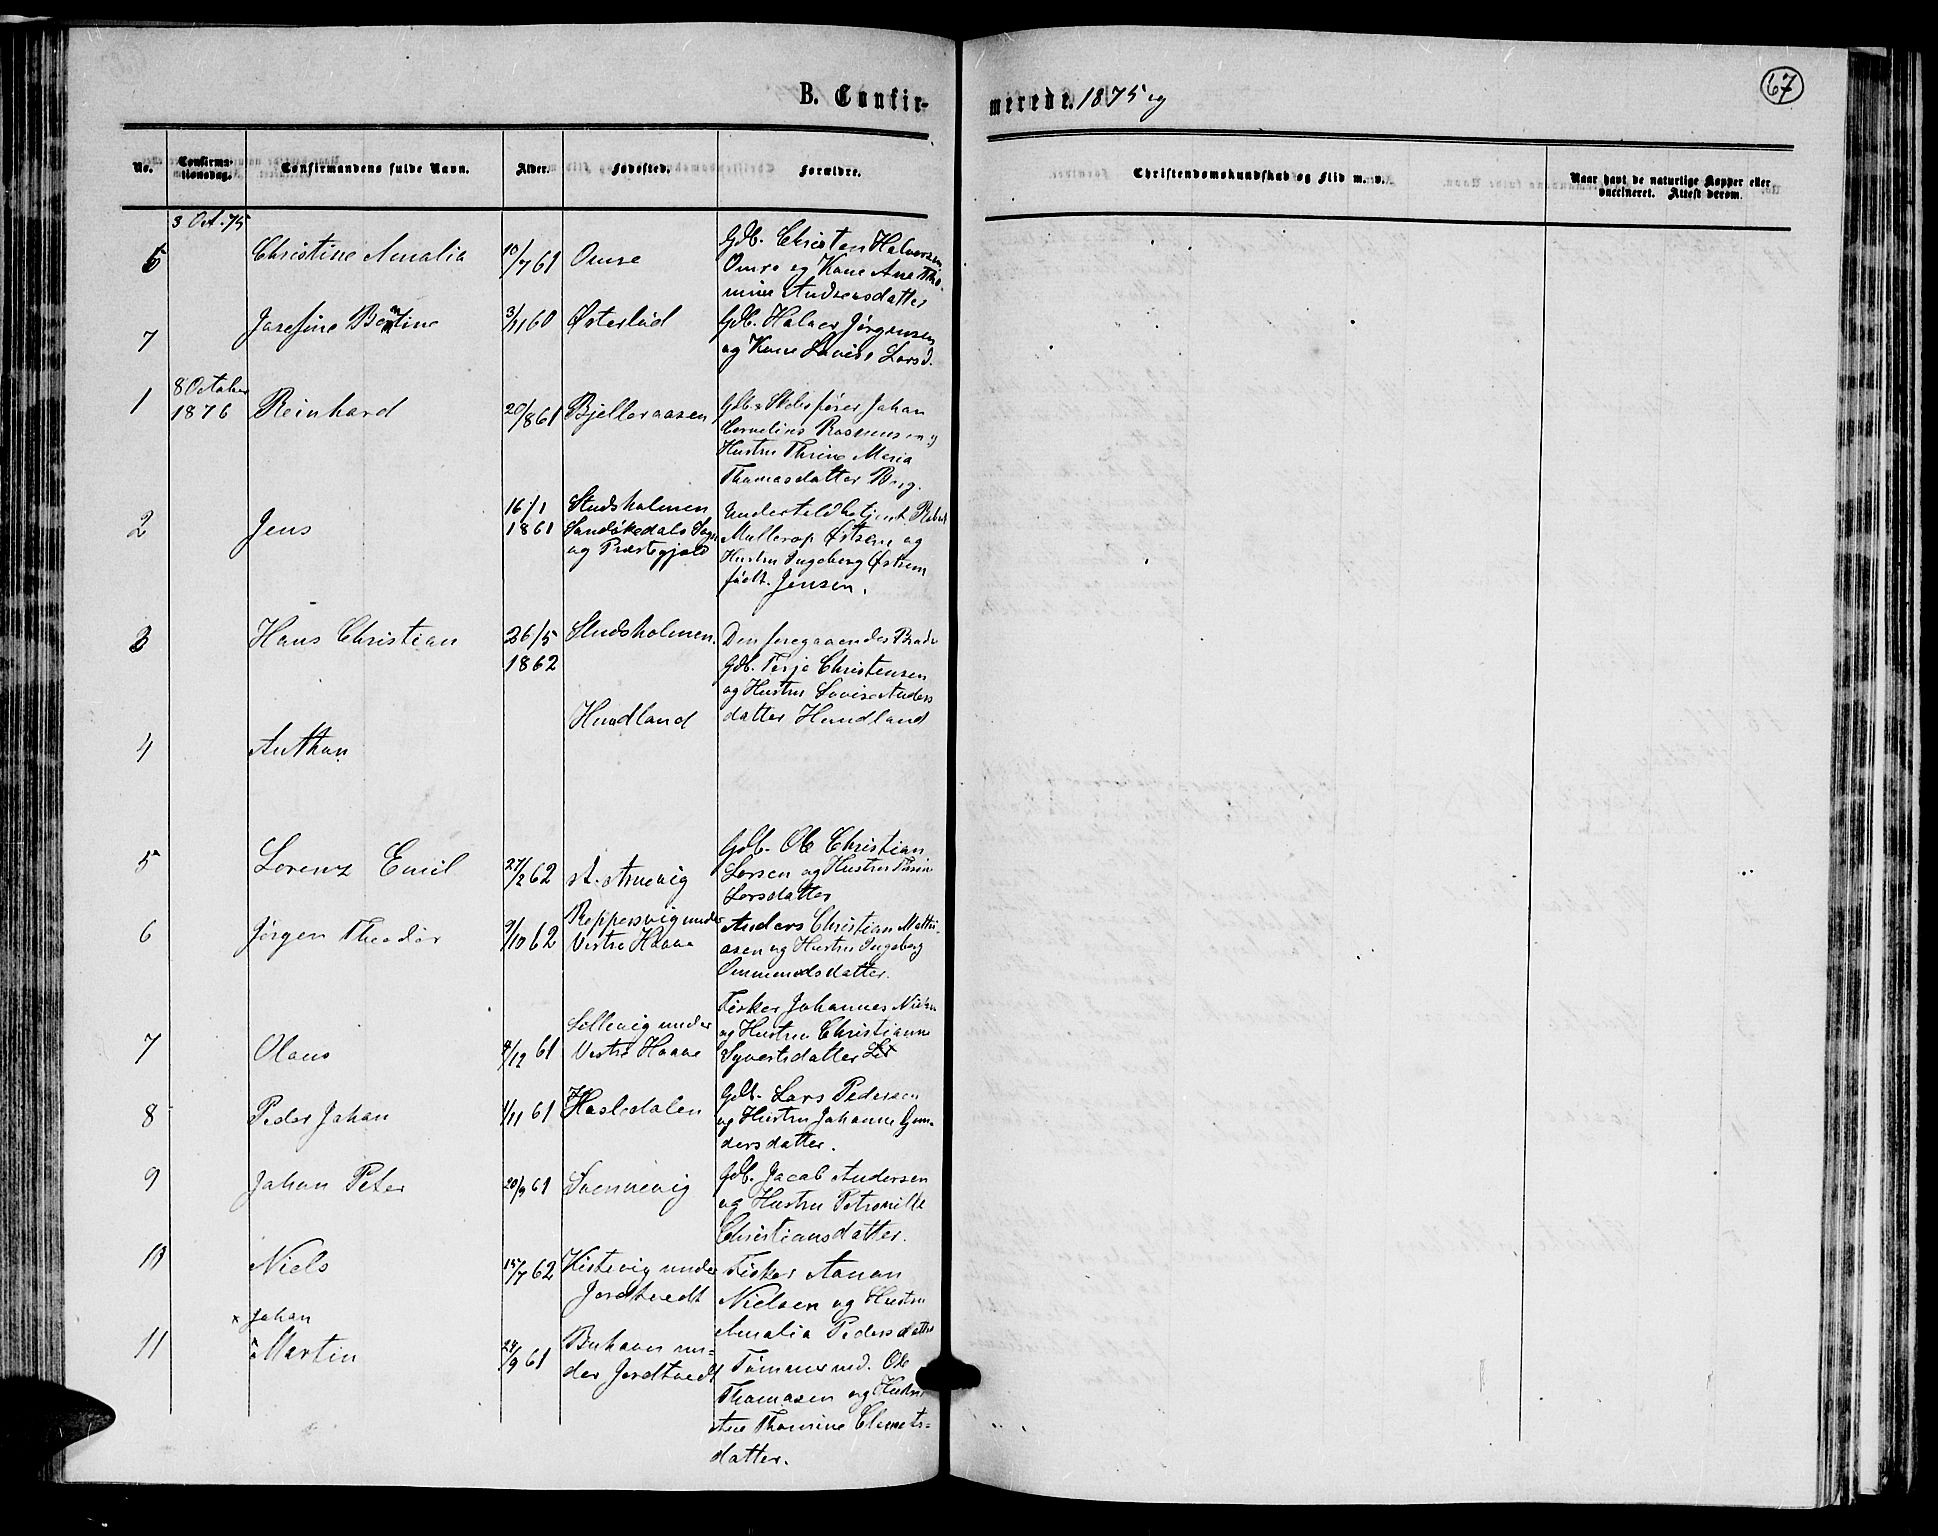 67
B. Confir-
merede. 1875 og
No.
Confirma-
tionsdag.
Confirmandens fulde Navn.
Alder.
Fødested.
Forældre.
Christendomskundskab og Flid m. v.
Naar havt de naturlige Kopper eller
vaccineret. Attest derom.
3 Oct. 75
6 Christine Amalia 10/7 61 Omre
Gdb. Christen Halvorsen
Omre og Kone Ane Tho-
mine Andersdatter
7 Josefine Bentine 3/11 60 Østerhid
Gdb. Halvor Jørgensen
og Kone Lovise Larsd.
1 8 October
1876 Reinhard 20/8 61 Bjelleraasen
Gdb. Skibsfører Johan
Cornelius Rasmussen og
Hustru Thrine Maria
Thomasdatter Berg.
2 Jens 16/1
1861
Studsholmen
Sandøkedals Sogn
og Præstegjæld
Undertoldbetjent Robert
Mullerop Østrem og
Hustru Ingeborg Østrem
født Jensen.
3 Hans Christian 26/5
1862 Studsholmen.
Den foregaaendes Broder
4 Anthon Hundland
Gdb. Terje Christensen
og Hustru Lovise Anders
datter Hundland
5 Lorenz Emil 27/2 62 st. Arnevig
Gdb. Ole Christian
Larsen og Hustru
Larsdatter
6 Jørgen Theodor 9/10 62
Reppersvig under
Vestre Haave
Anders Christian Mathi-
asen og Hustru Ingeborg
Ommundsdatter.
7 Olaus 4/12 61
Sellevig under
Vestre Haave
Fisker Johannes Nielsen
og Hustru Christianne
Syvertsdatter
8 Peder Johan 1/11 61 Hasledalen
Gdb. Lars Pedersen
og Hustru Johanne Gun-
dersdatter.
9 Johan Peter 20/9 61 Svennevig
Gdb. Jacob Andersen
og Hustru Petronille
Christiansdatter.
10 Niels 15/7 62
Kistevig under
Jordtvedt
Fisker Aanon
Nielsen og Hustru
Amalia Pedersdatter
11 x Johan
Martin 24/9 61
Buhavn un-
der Jordtvedt
Tømmermd. Ole
Thomasen og Hustru
Ane Thomine Clemets-
datter.